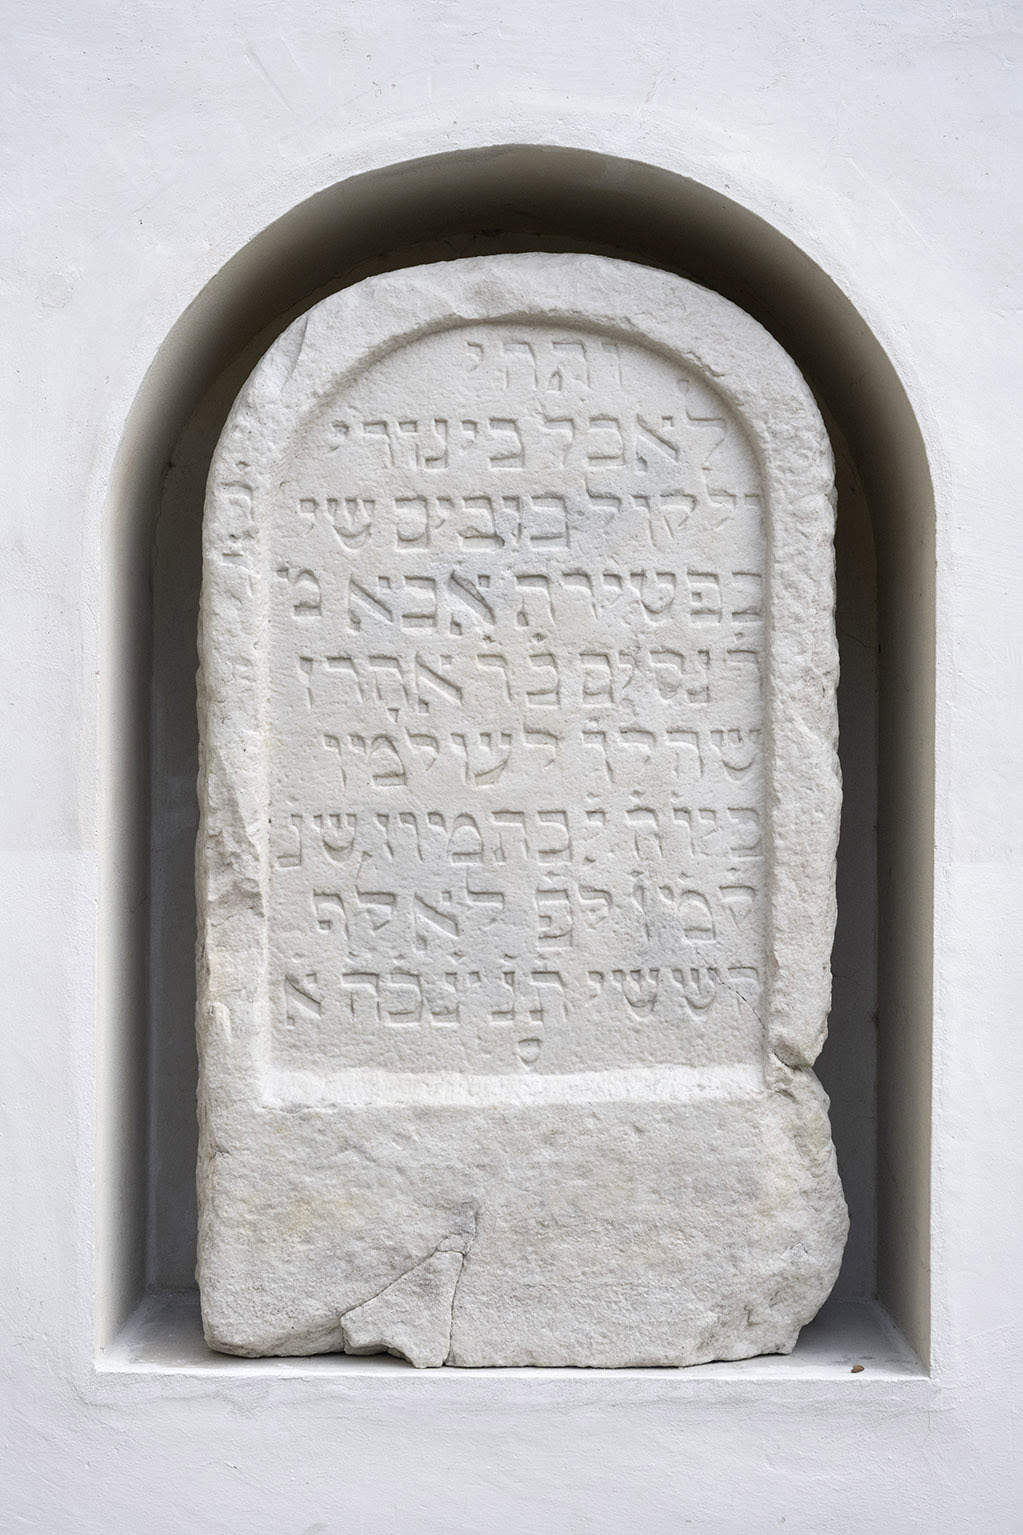 והרי
לאבל כינורי
ולקול בוכים שי
בפטירת אבא מ
ר נסים בר אהרן
שהלך לעולמו
ביום י בתמוז שנ
קמו לפ לאלף
הששי תנצבה א
ס